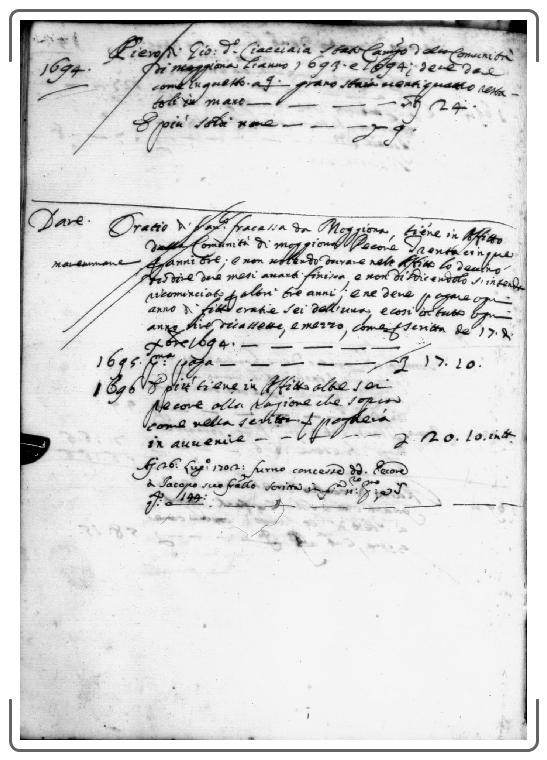 Piero di Gio: d.º Ciacciaia stato Camg.º della Comunità
1694.
di moggiona l'anno 1693. e 1694; deve dare
come in questo a 9. – grano staia venti quatro resta-
toli in mano — — — — 24.
E più soldi nove — — — 9.
Dare.
Oratio di San.º fracassa da Moggiona tiene in Affitto
dalla Comunità di moggiona Pecore Trenta cinque
p anni tre; e non volendo durare nell'Affitto lo devino
disdire due mesi avanti finisca e non disdicendolo s'intenda
ricominciato p altri tre anni; e ne deve pagare ogni
anno di fitto cratie sei dell'una, e così in tutto ogni
anno lire dicassette, e mezzo, come p scritta de 17. di
9bre 1694. — — — —
1695. p.ª paga — — — — 17. 10.
1696 E più tiene in Affitto altre sei
pecore alla ragione che sopra
come nella scritta e pagherà
in avvenire — — — 20. 10. in tt.º
A 26. Lug.º 1702: furno concesse dd. Pecore
a Jacopo suo fratello scritta in
144: